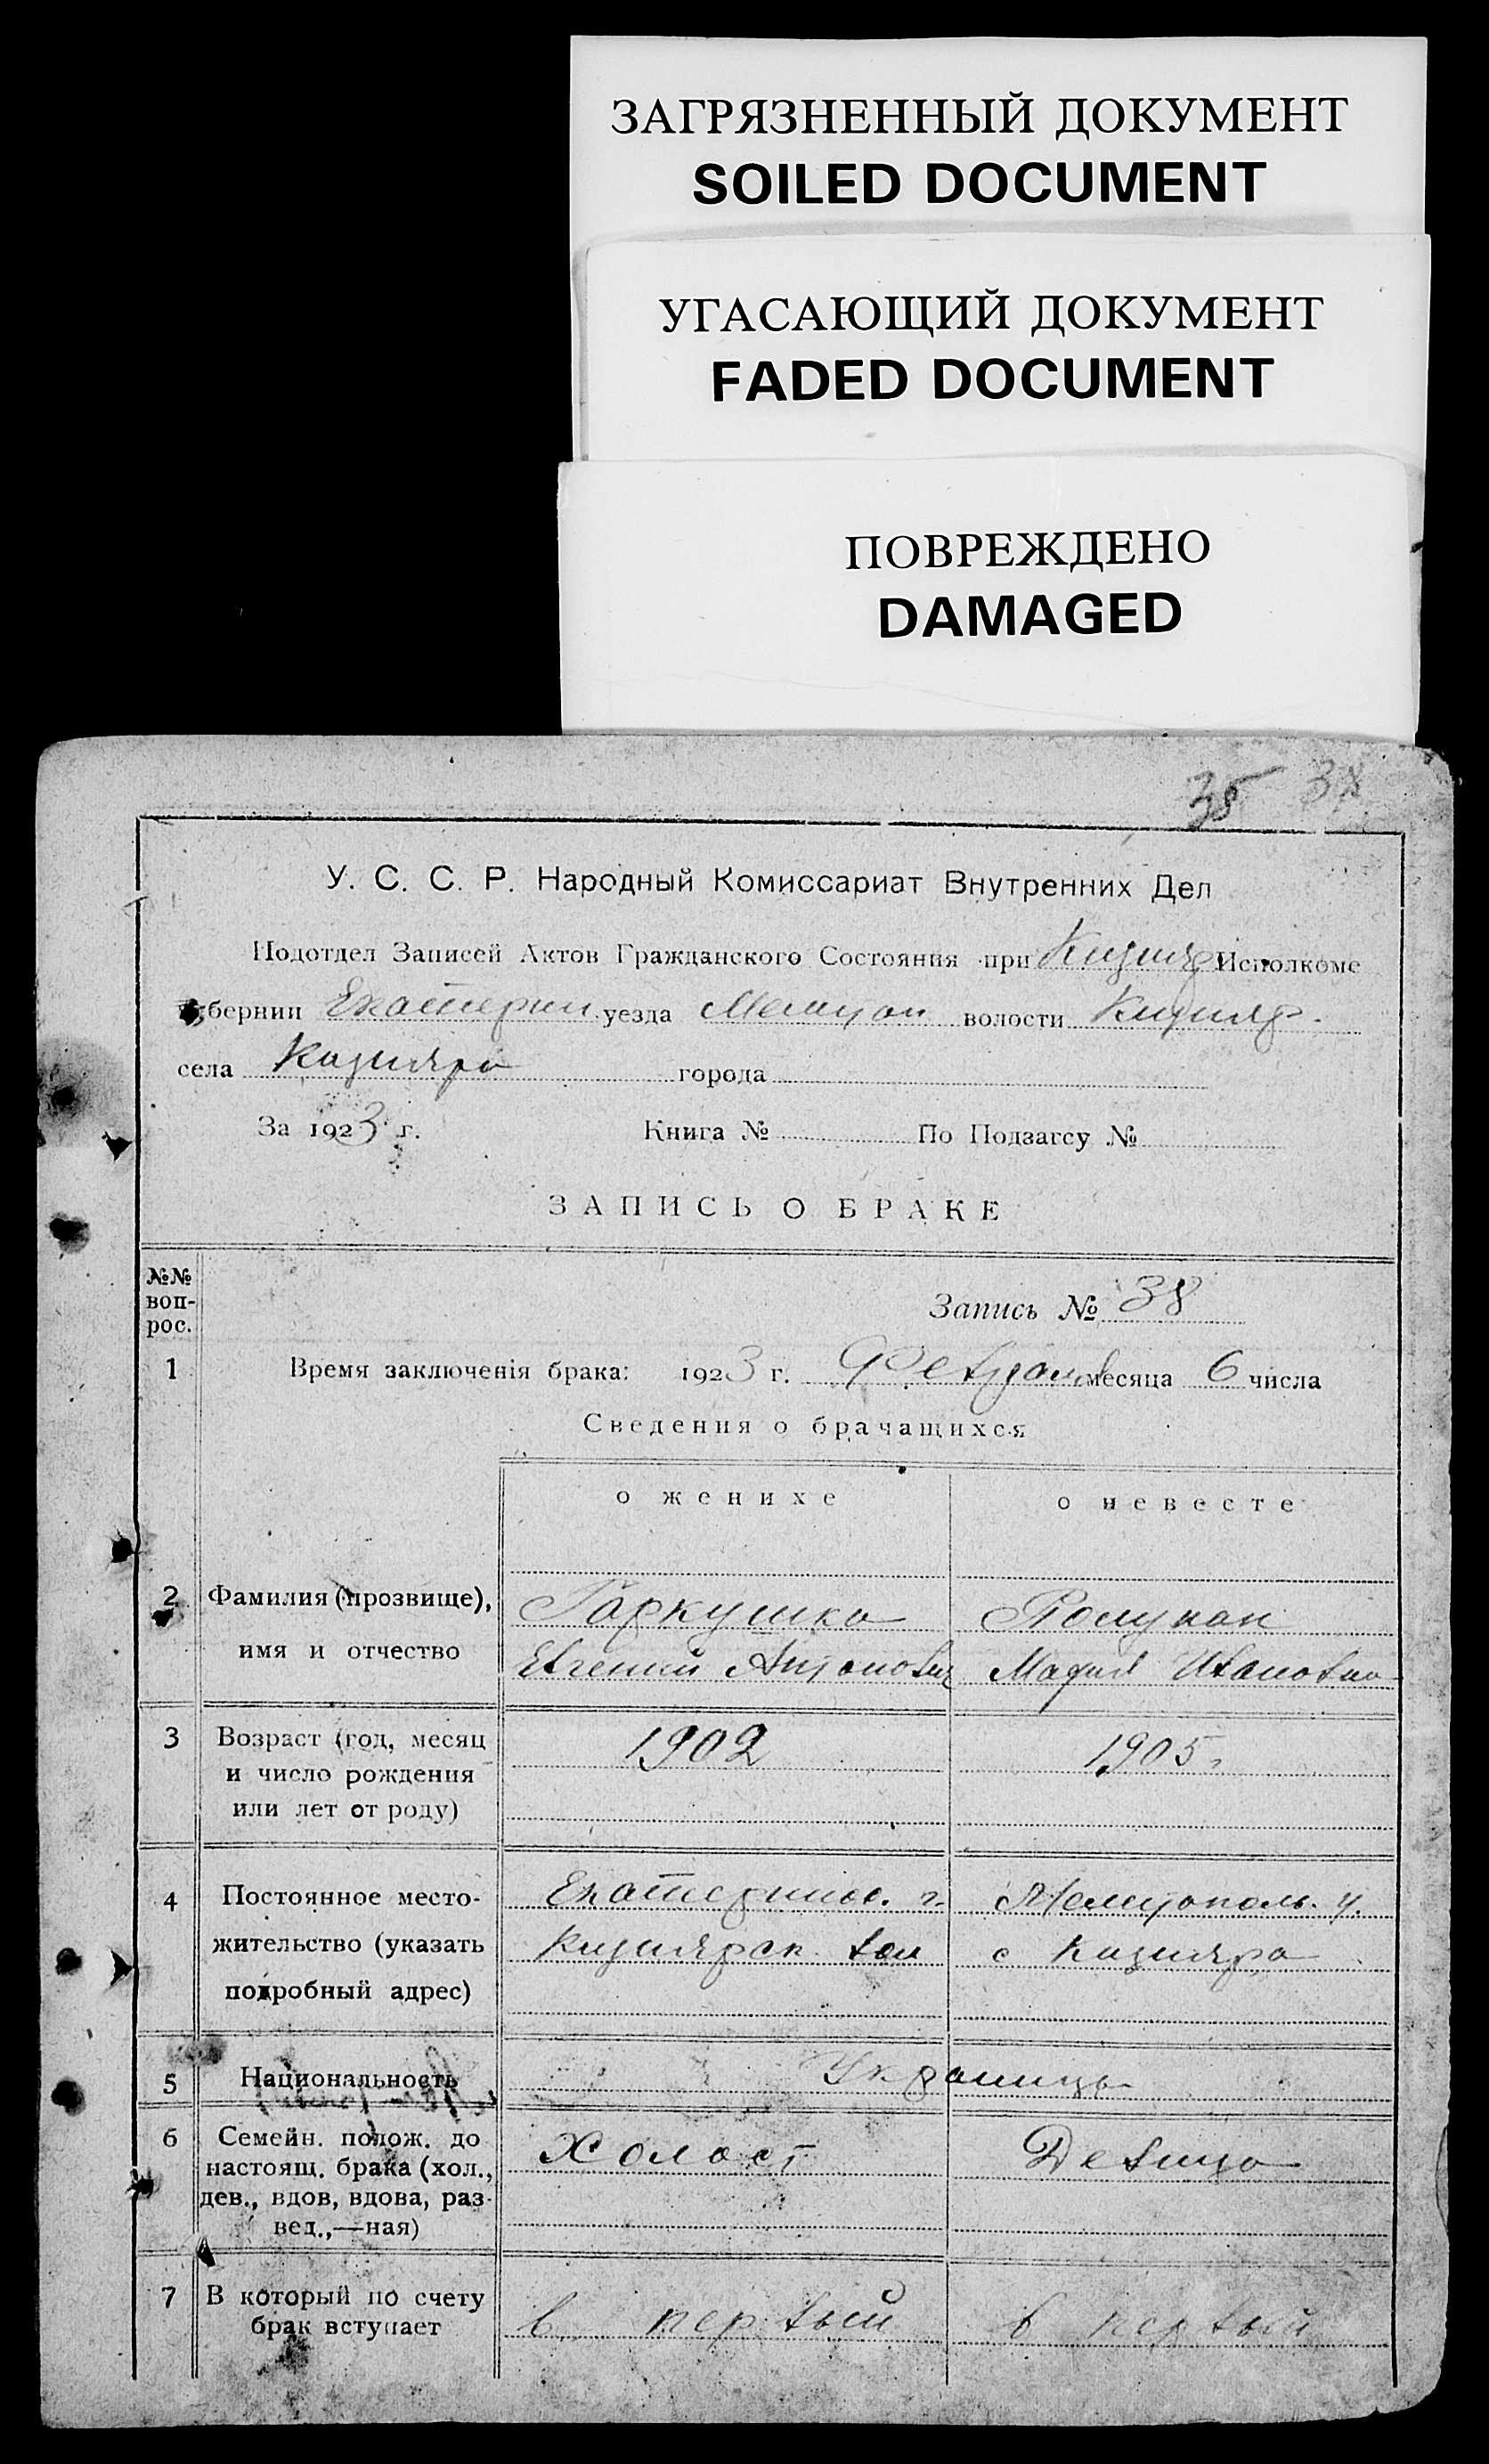 ЗАГРЯЗНЕННЫЙ ДОКУМЕНТ
SOILED DOCUMENT
УГАСАЮЩИЙ ДОКУМЕНТ
FADED DOCUMENT
ПОВРЕЖДЕНО
DAMAGED
35 38
У. С. С. Р. Народный Комиссариат Внутренних Дел
Подотдел Записей Актов Гражданского Состояния при Кизияр. Исполкоме
губернии Екатерин. уезда Мелитоп волости Кизияр.
села Кизияра города
За 1923 г. Книга № По Подзагсу №
ЗАПИСЬ О БРАКЕ
№№ воп-рос.
Запись № 38
1 Время заключенія брака: 1923 г. Февраля месяца 6 числа
Сведения о брачащихся
о женихе о невесте
2 Фамилия (прозвище), Гаркушка Полупан
имя и отчество Евгений Антонович Мария Ивановна
3 Возраст (год, месяц 1902 1905
и число рождения
или лет от роду)
4 Постоянное место- Екатеринос. г. Мелитополь. у.
жительство (указать Кизиярск. вол с Кизияра
подробный адрес)
5 Национальность Украинцы
6 Семейн. полож. до Холост Девица
настоящ. брака (хол.,
дев., вдов, вдова, раз-
вед.,—ная)
7 В который по счету в первый в первый
брак вступает